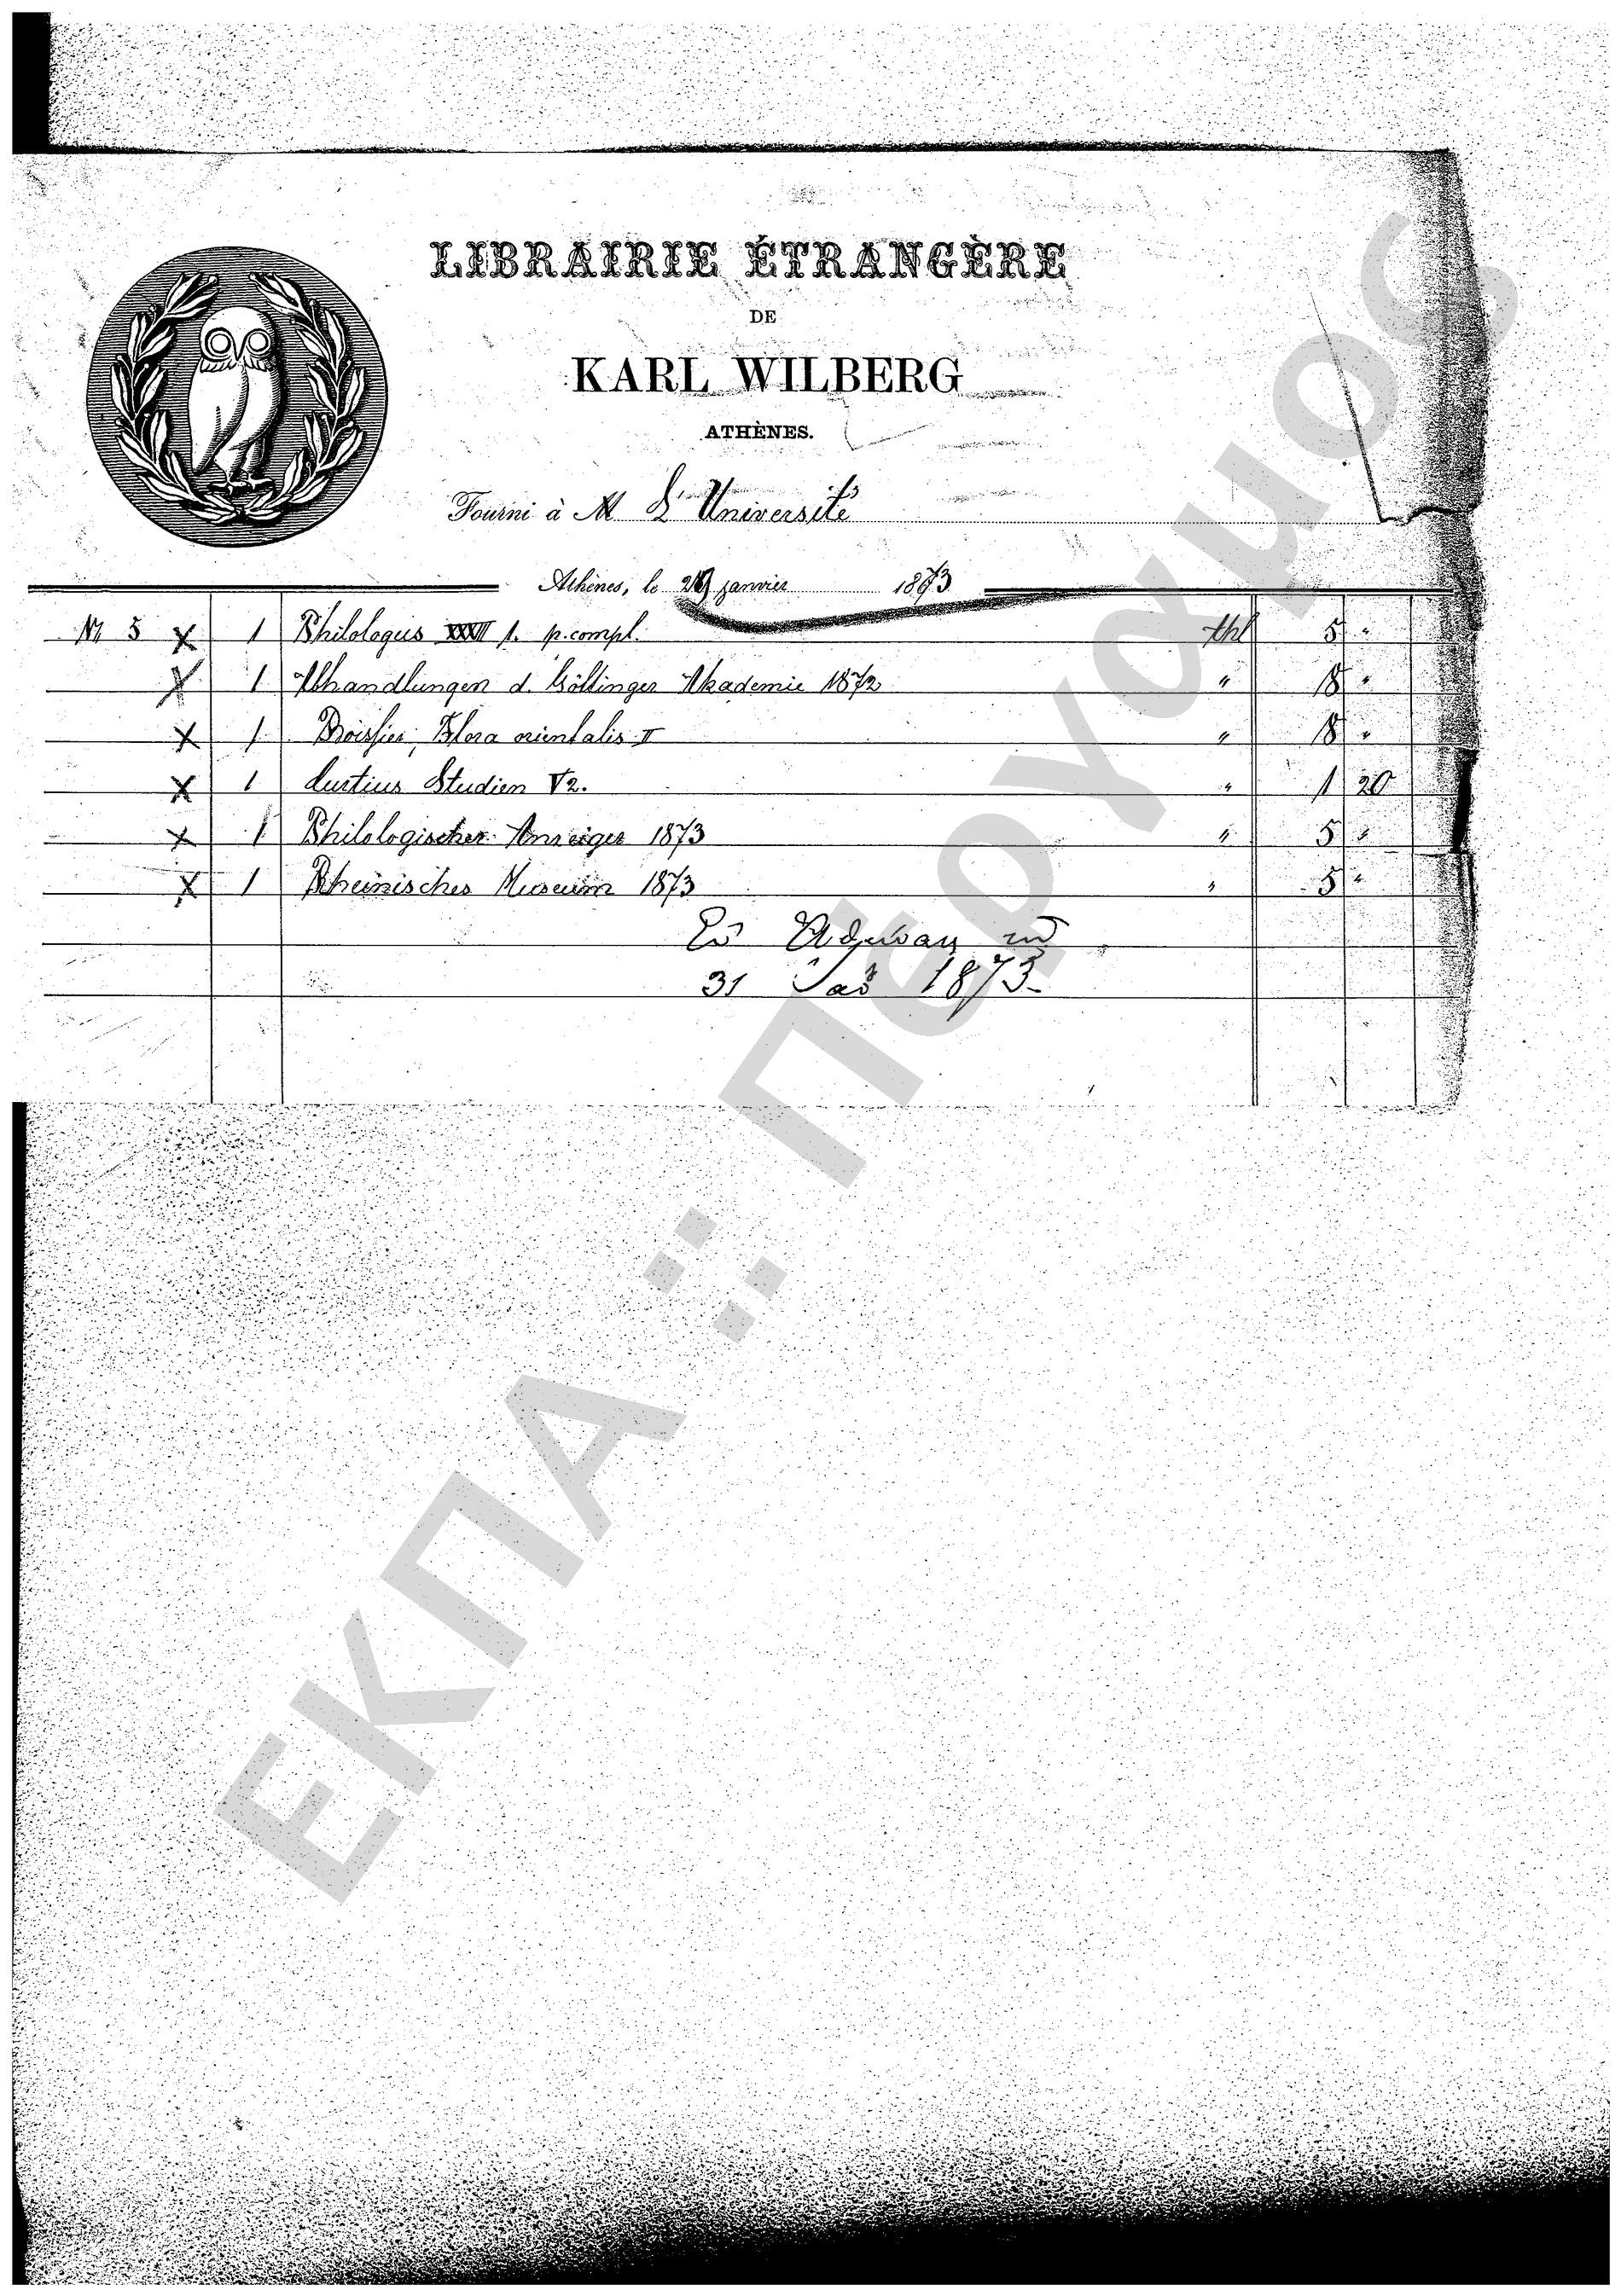 LIBRAIRIE ÉTRANGÈRE
DE
KARL WILBERG
ATHÈNES.
Fourni à M L'Université
Athènes, le janvier 1873
N 5 X 1 Philologus XXXIII 1. p. compl. thl 5 "
X 1 Abhandlungen d. Göttinger Akademie 1872 " 18 "
X 1 Boissier, Flora orientalis II " 18 "
X 1 Curtius Studien V 2. " 1 20
X 1 Philologischer Anzeiger 1873 " 5 "
X 1 Rheinisches Museum 1873 " 5 "
Ἐν Ἀθήναις τῇ
31 Ἰαν 1873
ΕΚΠΑ :: Πέργαμος